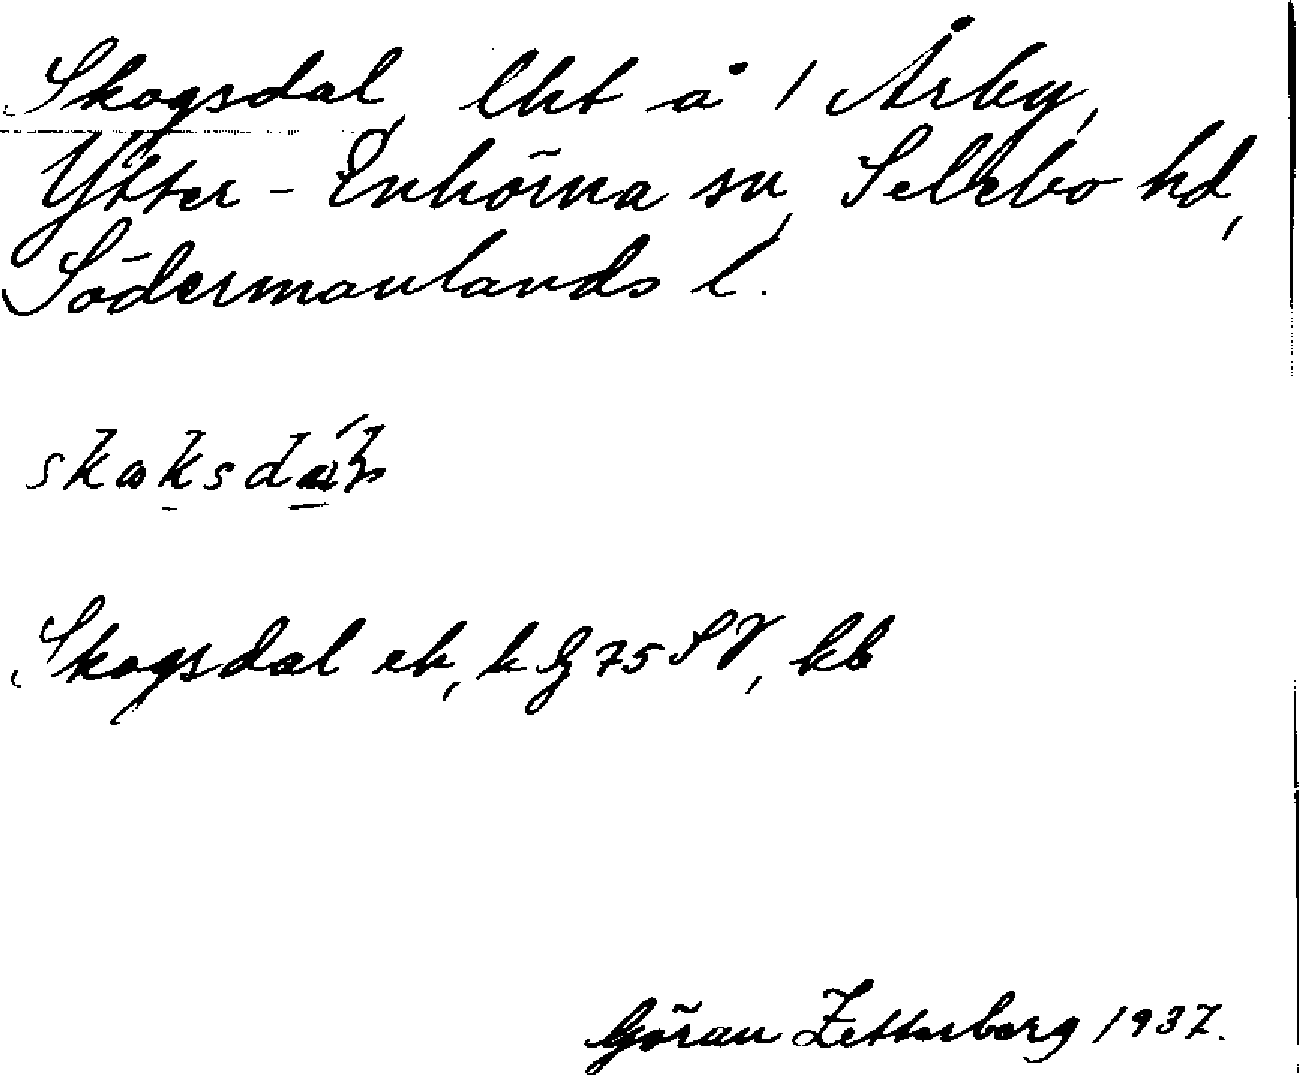 Skogsdal, lht å 1 Årby,
Ytter-Enhörna sn, Selebo hd,
Södermanlands l.
skoksdáɫ
Skogsdal ek, k G 75 SV, kb
Göran Zetterberg 1937.